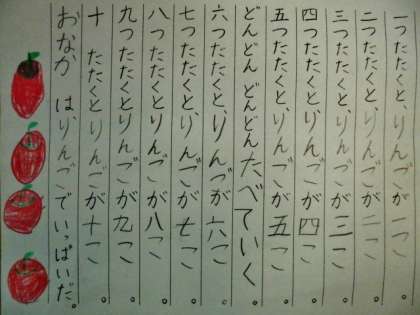 一つたたくと、りんごが一こ。
二つたたくと、りんごが二こ。
三つたたくと、りんごが三こ。
四つたたくと、りんごが四こ。
五つたたくと、りんごが五こ。
どんどん どんどんたべていく。
六つたたくと、りんごが六こ。
七つたたくとりんごが七こ。
八つたたくとりんごが八こ。
九つたたくとりんごが九こ。
十 たたくとりんごが十こ。
おなか はりんごでいっぱいだ。